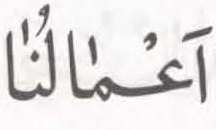 اَعْمٰالُنٰا